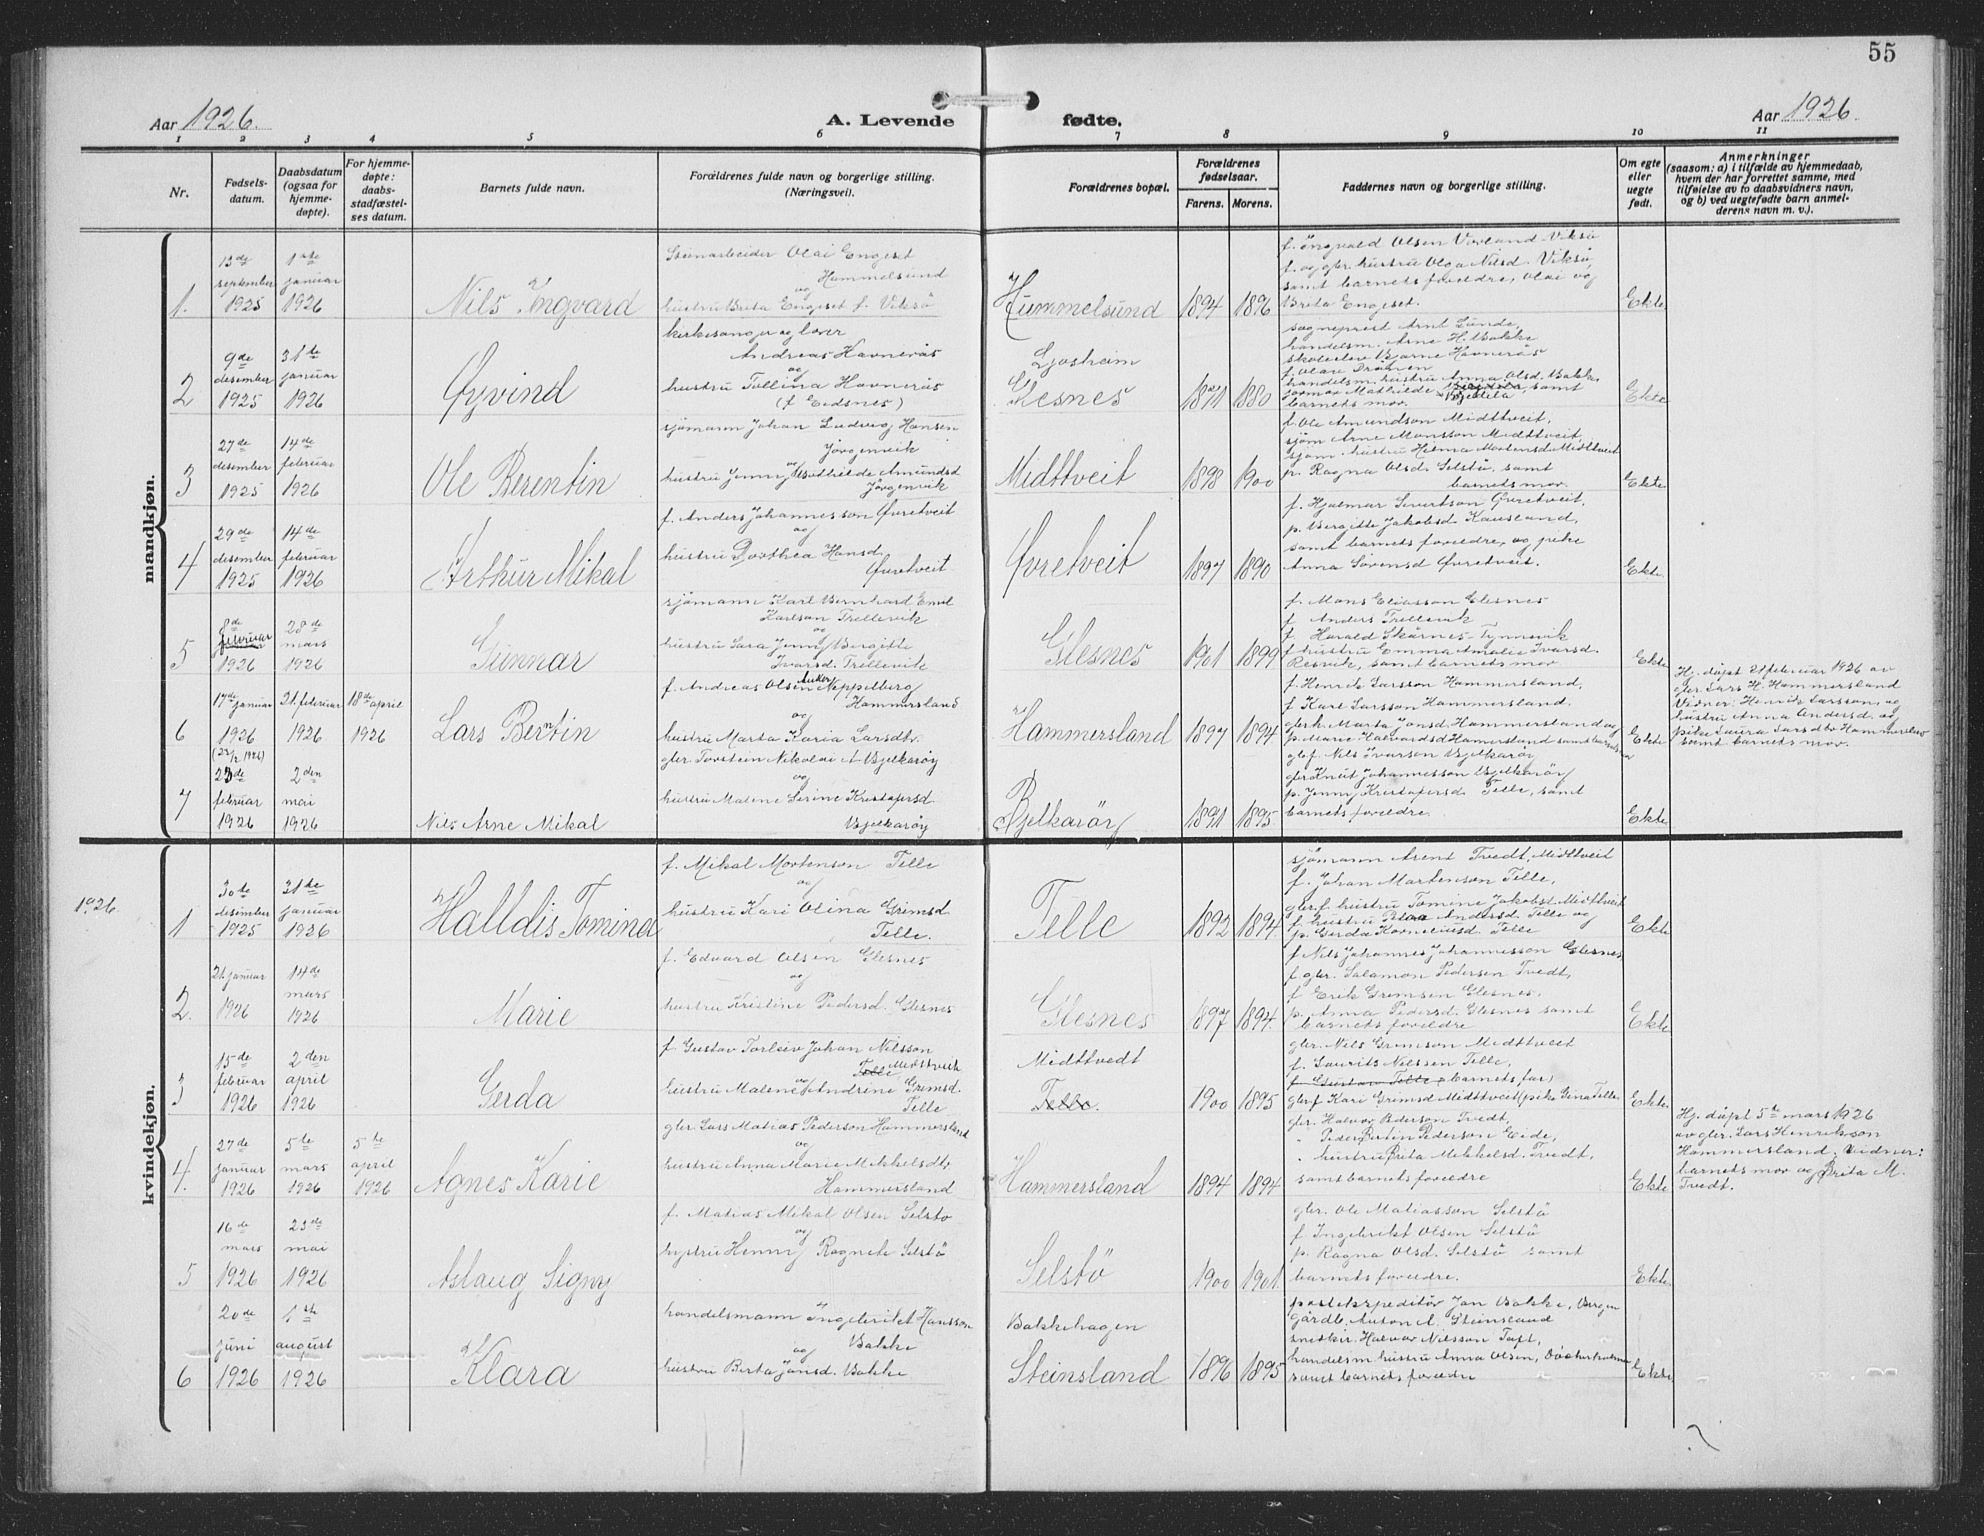 55
Aar 1926. A. Levende fødte. Aar 1926.
1 2 3 4 5 6 7 8 9 10 11
Nr.
Fødsels-
datum.
Daabsdatum
(ogsaa for
hjemme-
døpte).
For hjemme-
døpte:
daabs-
stadfæstel-
ses datum.
Barnets fulde navn.
Forældrenes fulde navn og borgerlige stilling.
(Næringsvei).
Forældrenes bopæl.
Forældrenes
fødselsaar.
Farens. Morens.
Faddernes navn og borgerlige stilling.
Om egte
eller
uegte
født.
Anmerkninger
(saasom: a) i tilfælde av hjemmedaab,
hvem der har forrettet samme, med
tilføielse av to daabsvidners navn,
og b) ved uegtefødte barn anmel-
derens navn m. v.).
mandkjøn.
1.
13de
september
1925
1ste
januar
1926
Nils Ingvard
Stenarbeider Olai Engeset
Hummelsund
og
hustru Brita Engeset f. Viksö
Hummelsund
1894 1896
f. Ingvald Olsen Vorland-Viksö
f. og gbr. hustru Olga Nilsd. Viksö,
samt barnets forældre, Olai og
Brita Engeset.
Ekte
2
9de
desember
1925
31te
januar
1926
Øyvind
kirkesanger og lærer
Andreas Havnerås
og
hustru Tollina Havnerås
(f Eidsnes)
Ljosheim
Glesnes
1871 1880
sogneprest Arnt Lunde,
handelsm. Arne H. Bakke
skoleelev Bjarne Havnerås
f. Olav Drönen
handelsm. hustru Anna Olsd. Bakke,
jormor Mathilde Bjelila, samt
barnets mor.
Ekte
3
27de
desember
1925
14de
februar
1926
Ole Berentin
sjømann Johan Ludvig Hansen
Jörgenvik
og
hustru Jenny Bothilde Amundsd
Jörgenvik
Midttveit
1898 1900
f. Ole Amundson Midttveit,
sjöm Arne Monsson Midttveit,
sjøm. hustru Helma Mortensd Midttveit
p. Ragna Olsd. Selstö, samt
barnets mor.
Ekte
4
29de
desember
1925
14de
februar
1926
Arthur Mikal
f. Anders Johannesson Øvretveit
og
hustru Dorthea Hansd.
Øvretveit
Øvretveit
1897 1890
f. Hjalmar Sivertson Øvretveit,
p. Bergitte Jakobsd Kausland,
samt barnets forældre, og pike
Anna Sörensd Øvretveit.
Ekte.
5
8de
februar
1926
28de
mars
1926
Gunnar
sjømann Karl Bernhard Emil
Karlson Trellevik
og
hustru Sara Jenny Bergitte
Ivarsd. Trellevik
Glesnes
1901 1899
f. Mons Eliasson Glesnes
f Anders Trellevik
f. Harald Skårnes-Tynnevik
f. hustru Emma Amalie Ivarsd.
Resvik, samt barnets mor
Ekte
6
17de januar
1926
(22/2 1926)
21. februar
1926
18de april
1926
Lars Bertin
f. Andreas Olsen Anker Neppelberg
Hammersland
og
hustru Marta Karia Larsdtr.
Hammersland
1897 1894
f. Henrik Larsson Hammersland,
f Karl Larsson Hammersland.
gbrk. Marta Jonsd. Hammersland og
p. Marie Halvardsd Hammersland samt barnets mor
Ekte
Hj. døpt 21 februar 1926 av
gbr. Lars H. Hammersland
Vidner: Henrik Larsson, og
hustru Anna Andersd. og
pike Laura Larsdtr Hammersland
samt barnets mor.
7
23de
februar
1926
2den
mai
1926
Nils Arne Mikal
gbr Torstein Nikolai A Bjelkarøy
og
hustru Malene Serine Kristofersd.
Bjelkarøy
Bjelkarøy
1891 1895
gbf Nils Ivarson Bjelkarøy
gbr Knut Johannesson Bjelkarøy
p. Jenny Kristofersd. Telle, samt
barnets forældre.
Ekte
1926.
kvindekjøn.
1
30te
desember
1925
31te
januar
1926
Halldis Tomina
f. Mikal Mortenson Telle
og
hustru Kari Olina Grimsd.
Telle.
Telle
1892 1894
sjömann Arent Tvedt, Midttveit
f. Johan Martenson Telle,
gbrf hustru Tomine Jakobsd. Midttveit
f. hustru Petra Andersd. Telle og
p. Gerda Korneliusd Telle
Ekte
2.
21. januar
1926
14de
mars
1926
Marie
f. Edvard Olsen Glesnes
og
hustru Kristine Pedersd. Glesnes
Glesnes
1897 1894.
f Nils Johannes Johannesson Glesnes
f gbr. Salamon Pedersen Tvedt,
f Erik Gremsen Glesnes.
p. Anna Pedersd. Glesnes samt
barnets forældre
Ekte
3
15de
februar
1926
2den
april
1926
Gerda
f. Gustav Torleiv Johan Nilsson
Telle Midttveit
og
hustru Malene Andrine Grimsd.
Telle
Midttvedt
Telle.
1900 1895
gbr. Nils Grimson Midttveit
f. Laurits Nilssen Telle,
f Gustav Telle (barnets far)
gbrf Kari Grimsd Midttveit (pike Gina Telle.
Ekte.
4.
27de
januar
1926
5te
mars
1926
5te
april
1926
Agnes Karie
gbr Lars Matias Pederson Hammersland
og
hustru Anna Marie Mikkelsdtr.
Hammersland
Hammersland
1894 1894
gbr. Halvor Pederson Tvedt,
" Peder Bertin Pederson Eide,
" hustru Brita Mikkelsd. Tvedt,
samt barnets forældre
Ekte
Hj. døpt 5te mars 1926
av gbr. Lars Henrikson
Hammersland. Vidner:
barnets mor og Brita M.
Tvedt.
5
16de
mars
1926
23de
mai
1926
Aslaug Signy
f. Matias Mikal Olsen Selstö
og
hustru Henny Ragnete Selstö
Selstö
1900 1901
gbr. Ole Matiasson Selstö
f Ingebrikt Olsen Selstö
p. Ragna Olsd. Selstö samt
barnets forældre.
Ekte
6
20de
juni
1926
1ste
august
1926
Klara
handelsmann Ingebrikt Hansson
Bakke
og
hustru Berta Jonsd. Bakke
Bakkehagen
Steinsland
1896 1895
postekspeditör Jan Bakke, Bergen
gårdb. Anton A. Steinsland
snekker. Halvor Nilsson Toft,
handelsm hustru Anna Olsen,
samt barnets forældre
Ekte